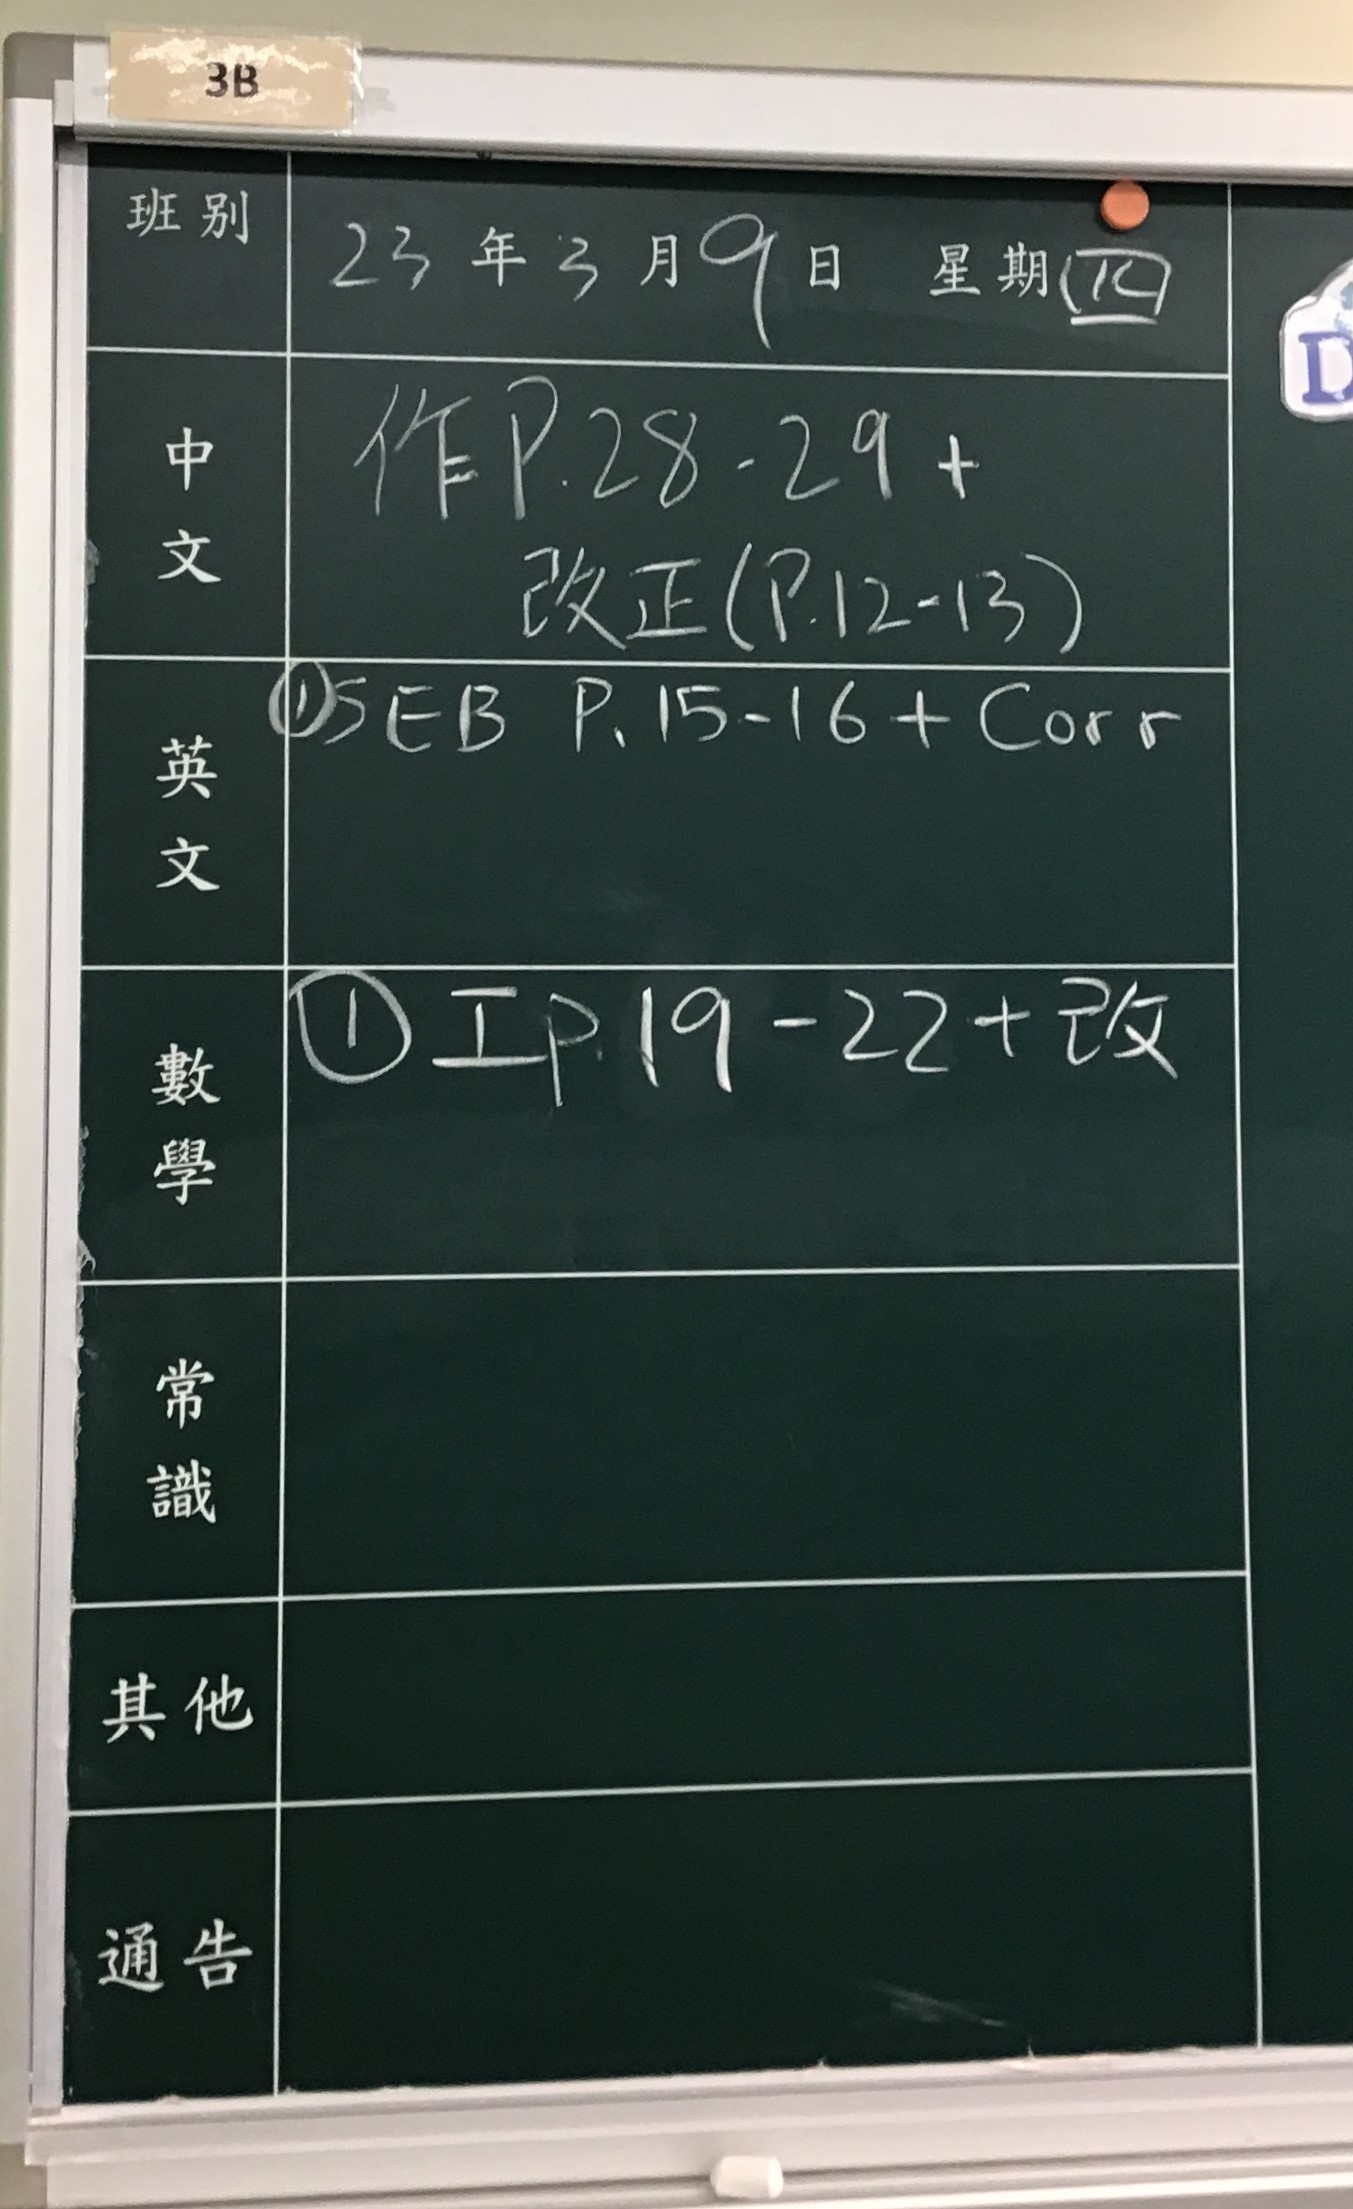 3B
班別 23年3月9日 星期四
中文 作P.28-29+
改正(P.12-13)
英文 ①SEB P.15-16+Corr
數學 ①工P.19-22+改
常識
其他
通告
D